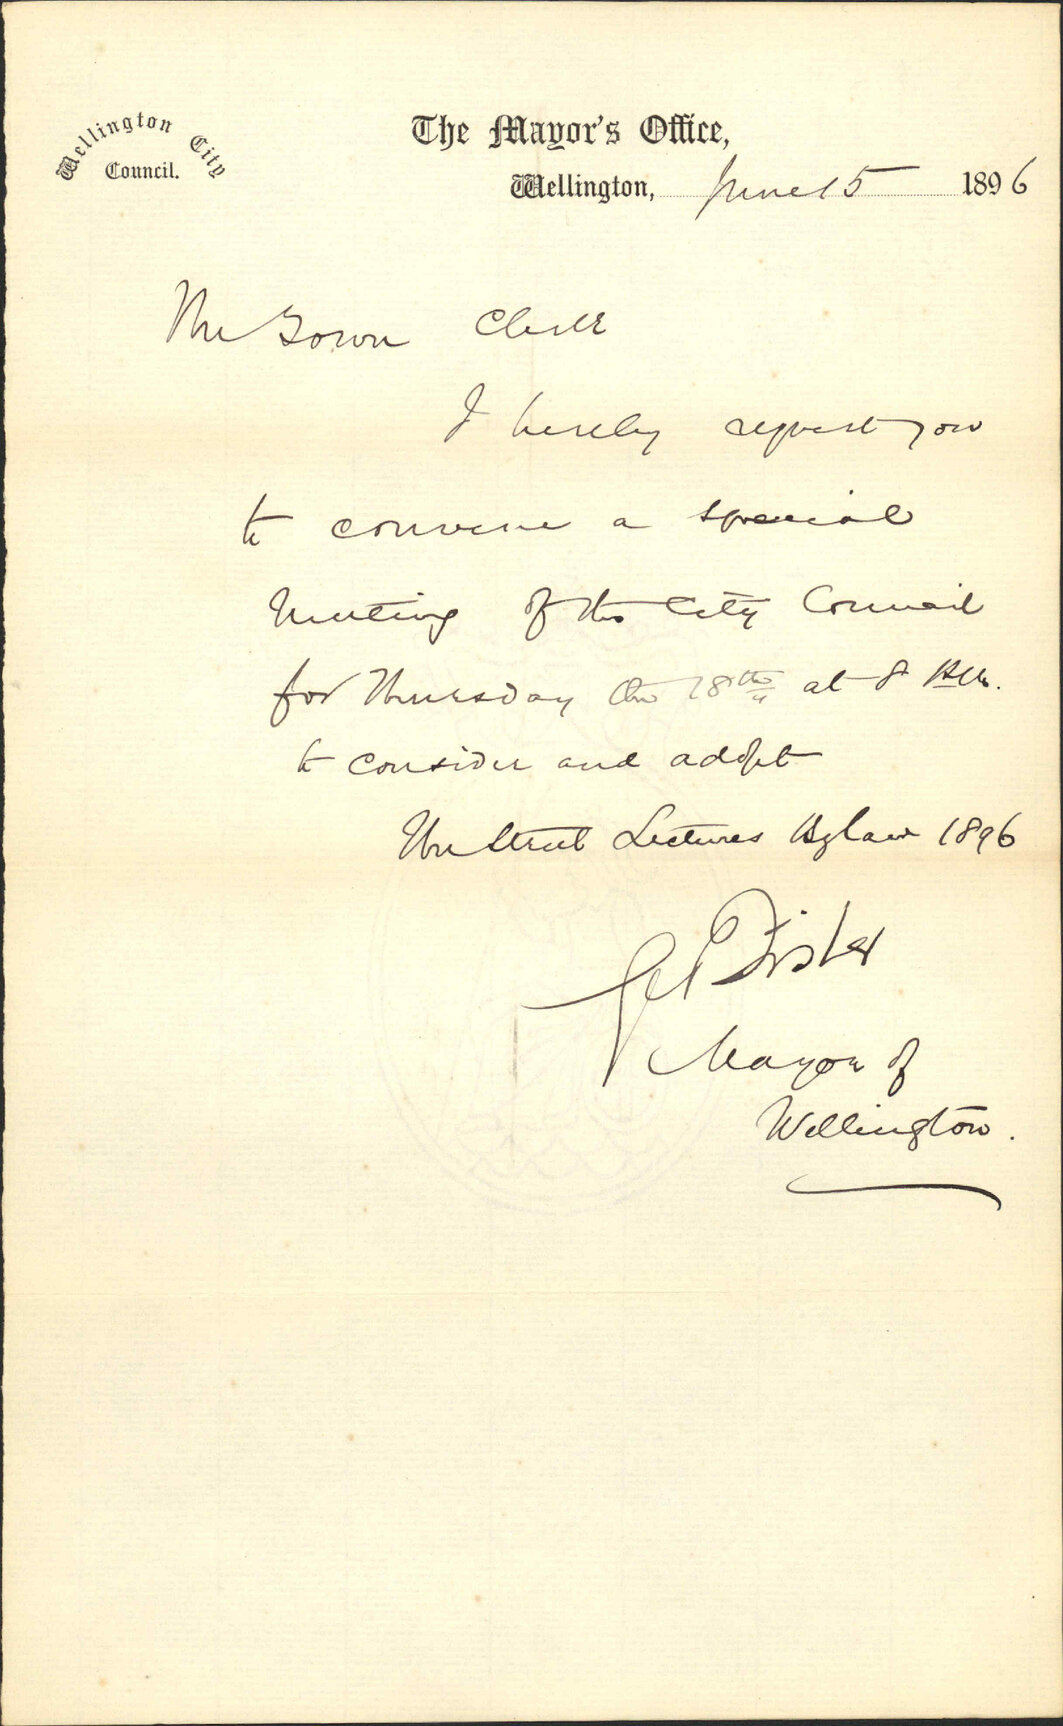 Wellington City
Council.
The Mayor's Office,
Wellington, June 15 1896
The Town Clerk
I hereby request you
to convene a special
Meeting of the City Council
for Thursday the 18th at 8 P.M.
to consider and adopt
The Street Lectures Bylaw 1896
Geo Fisher
Mayor of
Wellington.